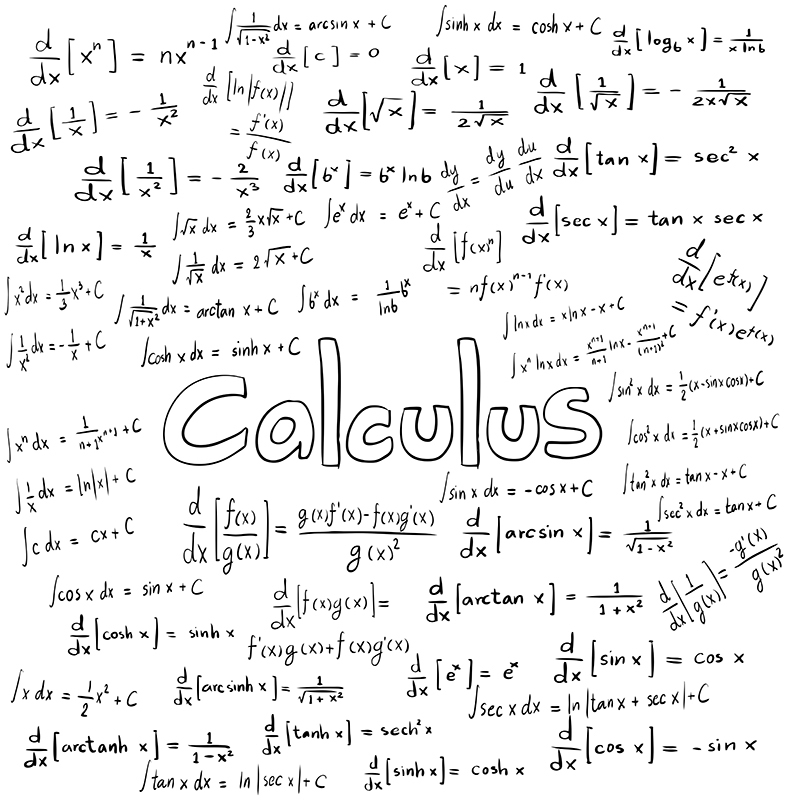 d/dx [xⁿ] = nxⁿ⁻¹
∫ 1/√(1-x²) dx = arcsin x + C
∫ sinh x dx = cosh x + C
d/dx [log_b x] = 1/(x ln b)
d/dx [c] = 0
d/dx [x] = 1
d/dx [ln|f(x)|] = f'(x)/f(x)
d/dx [1/x] = - 1/x²
d/dx [√x] = 1/(2√x)
d/dx [1/√x] = - 1/(2x√x)
d/dx [1/x²] = - 2/x³
d/dx [bˣ] = bˣ ln b
dy/dx = dy/du du/dx
d/dx [tan x] = sec² x
d/dx [ln x] = 1/x
∫ √x dx = 2/3 x√x + C
∫ eˣ dx = eˣ + C
d/dx [sec x] = tan x sec x
∫ 1/√x dx = 2√x + C
d/dx [f(x)ⁿ] = nf(x)ⁿ⁻¹ f'(x)
d/dx [e^f(x)] = f'(x)e^f(x)
∫ x² dx = 1/3 x³ + C
∫ 1/√(1+x²) dx = arctan x + C
∫ bˣ dx = 1/(ln b) bˣ
∫ ln x dx = x ln x - x + C
∫ 1/x² dx = - 1/x + C
∫ cosh x dx = sinh x + C
∫ xⁿ ln x dx = xⁿ⁺¹/(n+1) ln x - xⁿ⁺¹/(n+1)² + C
Calculus
∫ sin² x dx = 1/2 (x - sin x cos x) + C
∫ xⁿ dx = 1/(n+1) xⁿ⁺¹ + C
∫ cos² x dx = 1/2 (x + sin x cos x) + C
∫ 1/x dx = ln|x| + C
∫ sin x dx = - cos x + C
∫ tan² x dx = tan x - x + C
∫ sec² x dx = tan x + C
∫ c dx = cx + C
d/dx [f(x)/g(x)] = (g(x)f'(x) - f(x)g'(x))/g(x)²
d/dx [arcsin x] = 1/√(1-x²)
d/dx [1/g(x)] = -g'(x)/g(x)²
∫ cos x dx = sin x + C
d/dx [f(x)g(x)] =
f'(x)g(x) + f(x)g'(x)
d/dx [arctan x] = 1/(1+x²)
d/dx [cosh x] = sinh x
d/dx [eˣ] = eˣ
d/dx [sin x] = cos x
∫ x dx = 1/2 x² + C
d/dx [arcsinh x] = 1/√(1+x²)
∫ sec x dx = ln|tan x + sec x| + C
d/dx [arctanh x] = 1/(1-x²)
d/dx [tanh x] = sech² x
d/dx [cos x] = - sin x
∫ tan x dx = ln|sec x| + C
d/dx [sinh x] = cosh x